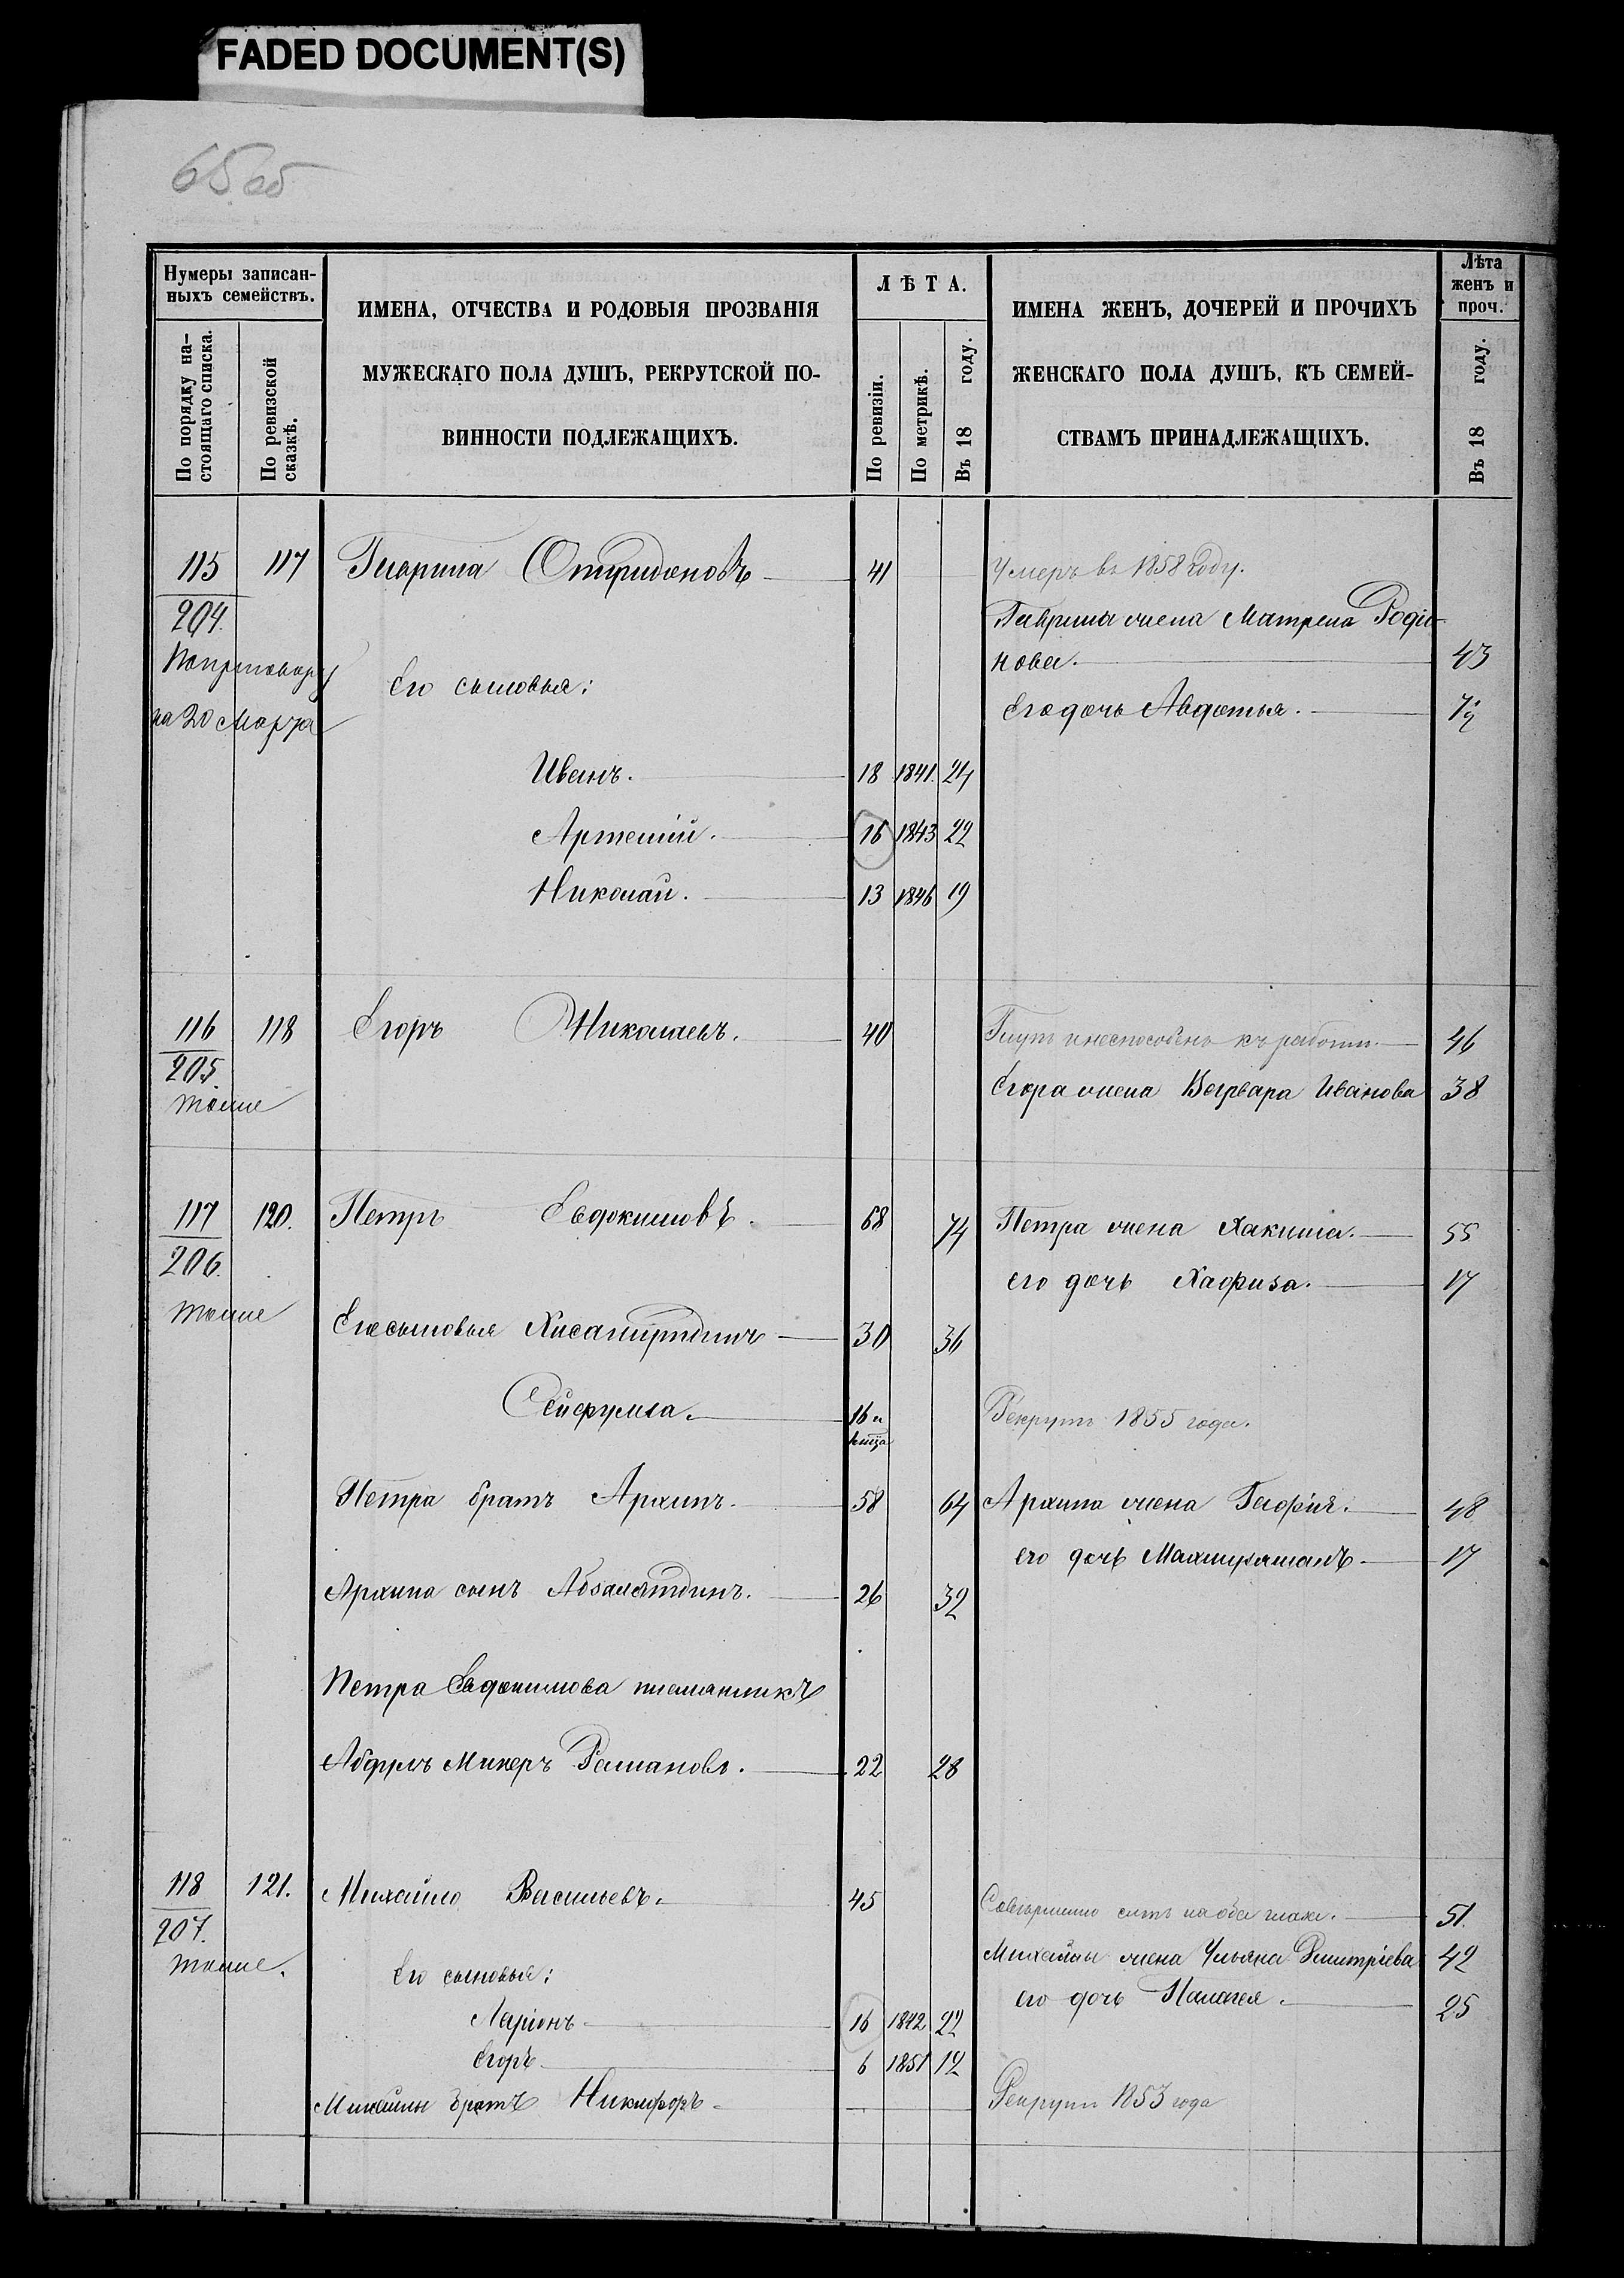 FADED DOCUMENT(S)
65 об
Нумеры записан-
ныхъ семействъ.
По порядку на-
стоящаго списка.
По ревизской
сказкѣ.
ИМЕНА, ОТЧЕСТВА И РОДОВЫЯ ПРОЗВАНІЯ
МУЖЕСКАГО ПОЛА ДУШЪ, РЕКРУТСКОЙ ПО-
ВИННОСТИ ПОДЛЕЖАЩИХЪ.
ЛѢТА.
По ревизіи.
По метрикѣ.
Въ 18 году.
ИМЕНА ЖЕНЪ, ДОЧЕРЕЙ И ПРОЧИХЪ
ЖЕНСКАГО ПОЛА ДУШЪ, КЪ СЕМЕЙ-
СТВАМЪ ПРИНАДЛЕЖАЩИХЪ.
Лѣта
женъ и
проч.
Въ 18 году.
115 117 Гаврила Спиридоновъ 41 Умеръ въ 1858 году.
204. Гаврилы жена Матрена Родіо-
По приговору нова. 43
на 20 Марта Его сыновья: Его дочь Авдотья.
Иванъ. 18 1841. 24
Артемій. 16 1843 22
Николай. 13 1846 19
116 118 Егоръ Николаевъ. 40 неспособенъ къ работѣ. 46
205. Егора жена Варвара Иванова 38
тоже
117 120. Петръ Евдокимовъ. 68 74 Петра жена Хакима. 55
206. его дочь Хафиза. 17
тоже Его сыновья 30 36
Сейфулла. 16 и Рекрутъ 1855 года.
Петра братъ Архипъ. 58 64 Архипа жена 48
его дочь 17
Архипа сынъ 26 32
Петра Евдокимова племянникъ
22 28
118 121. Михайло Васильевъ. 45 Совершенно слѣпъ на оба глаза. 51.
207. Михайлы жена Ульяна Дмитріева 42
тоже. Его сыновья: его дочь Палагея. 25
Ларіонъ 16 1842 22
Егоръ 6 1851 12
Михайлы братъ Никифоръ Рекрутъ 1853 года